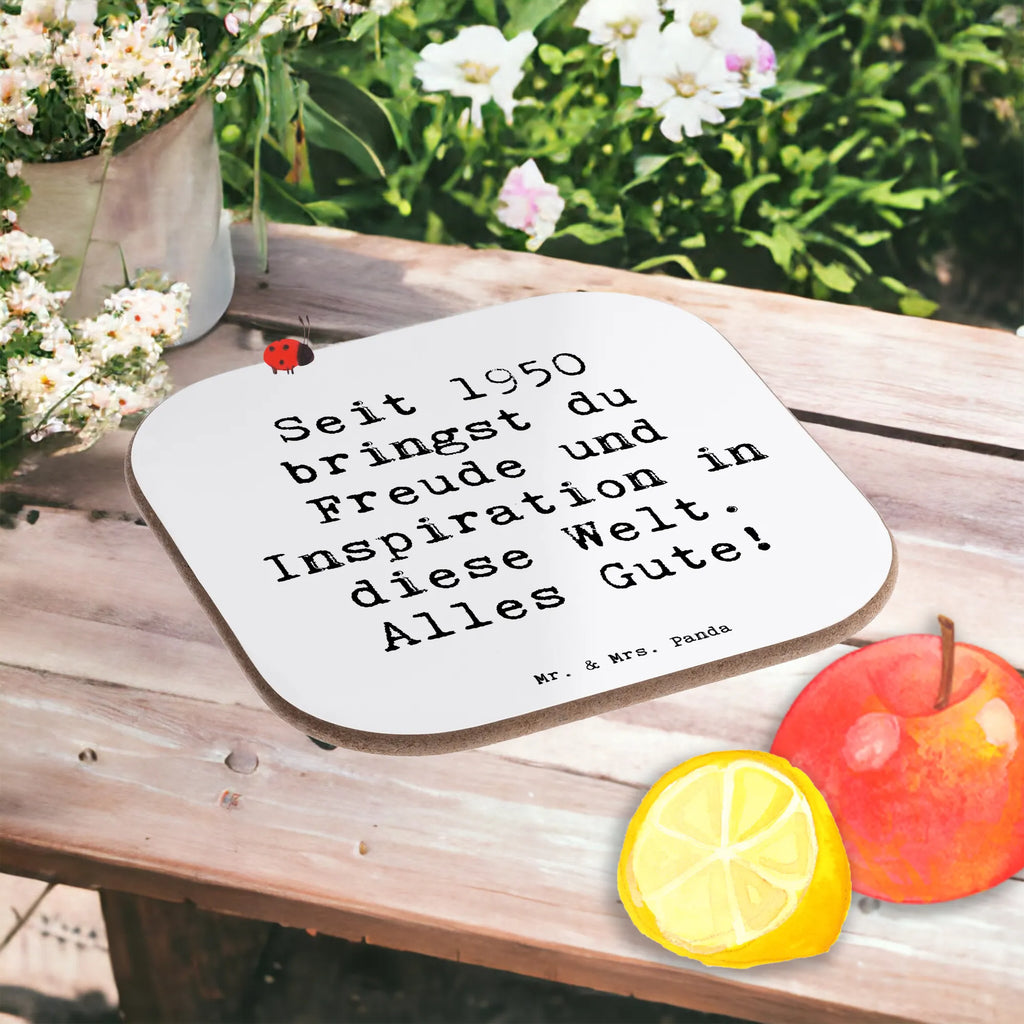 Seit 1950
bringst du
Freude und
Inspiration in
diese Welt.
Alles Gute!
Mr. & Mrs. Panda